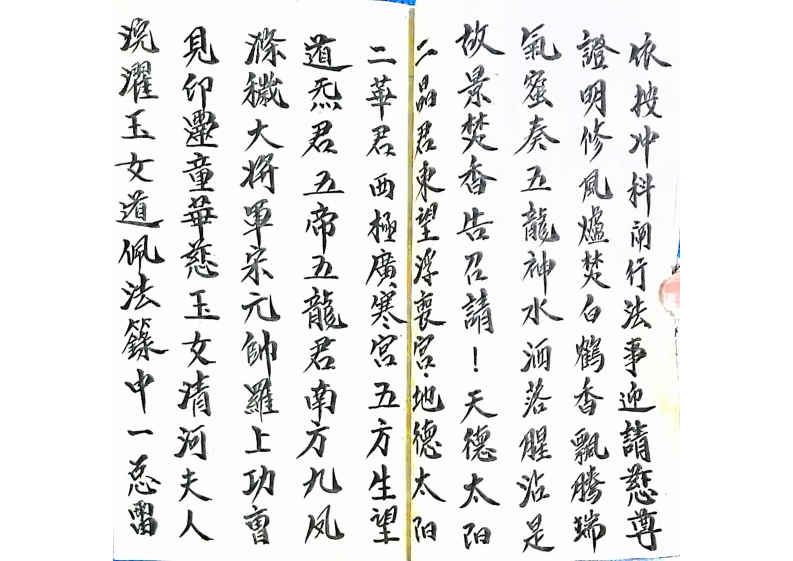 依按冲科闸行法事迎請慈尊
證明修风爐焚白鶴香飄腾端
氣蜜奏五龍神水洒落腥沾是
故景焚香告召請！天德太阳
二晶君東望浮喪宫·地德太阳
二華君西極廣寒宫五方生望
道炁君五帝五龍君南方九凤
滌穢大将軍宋元帥羅上功曹
見印靈童華慈玉女清河夫人
浣濯玉女道佩法籙中一总雷